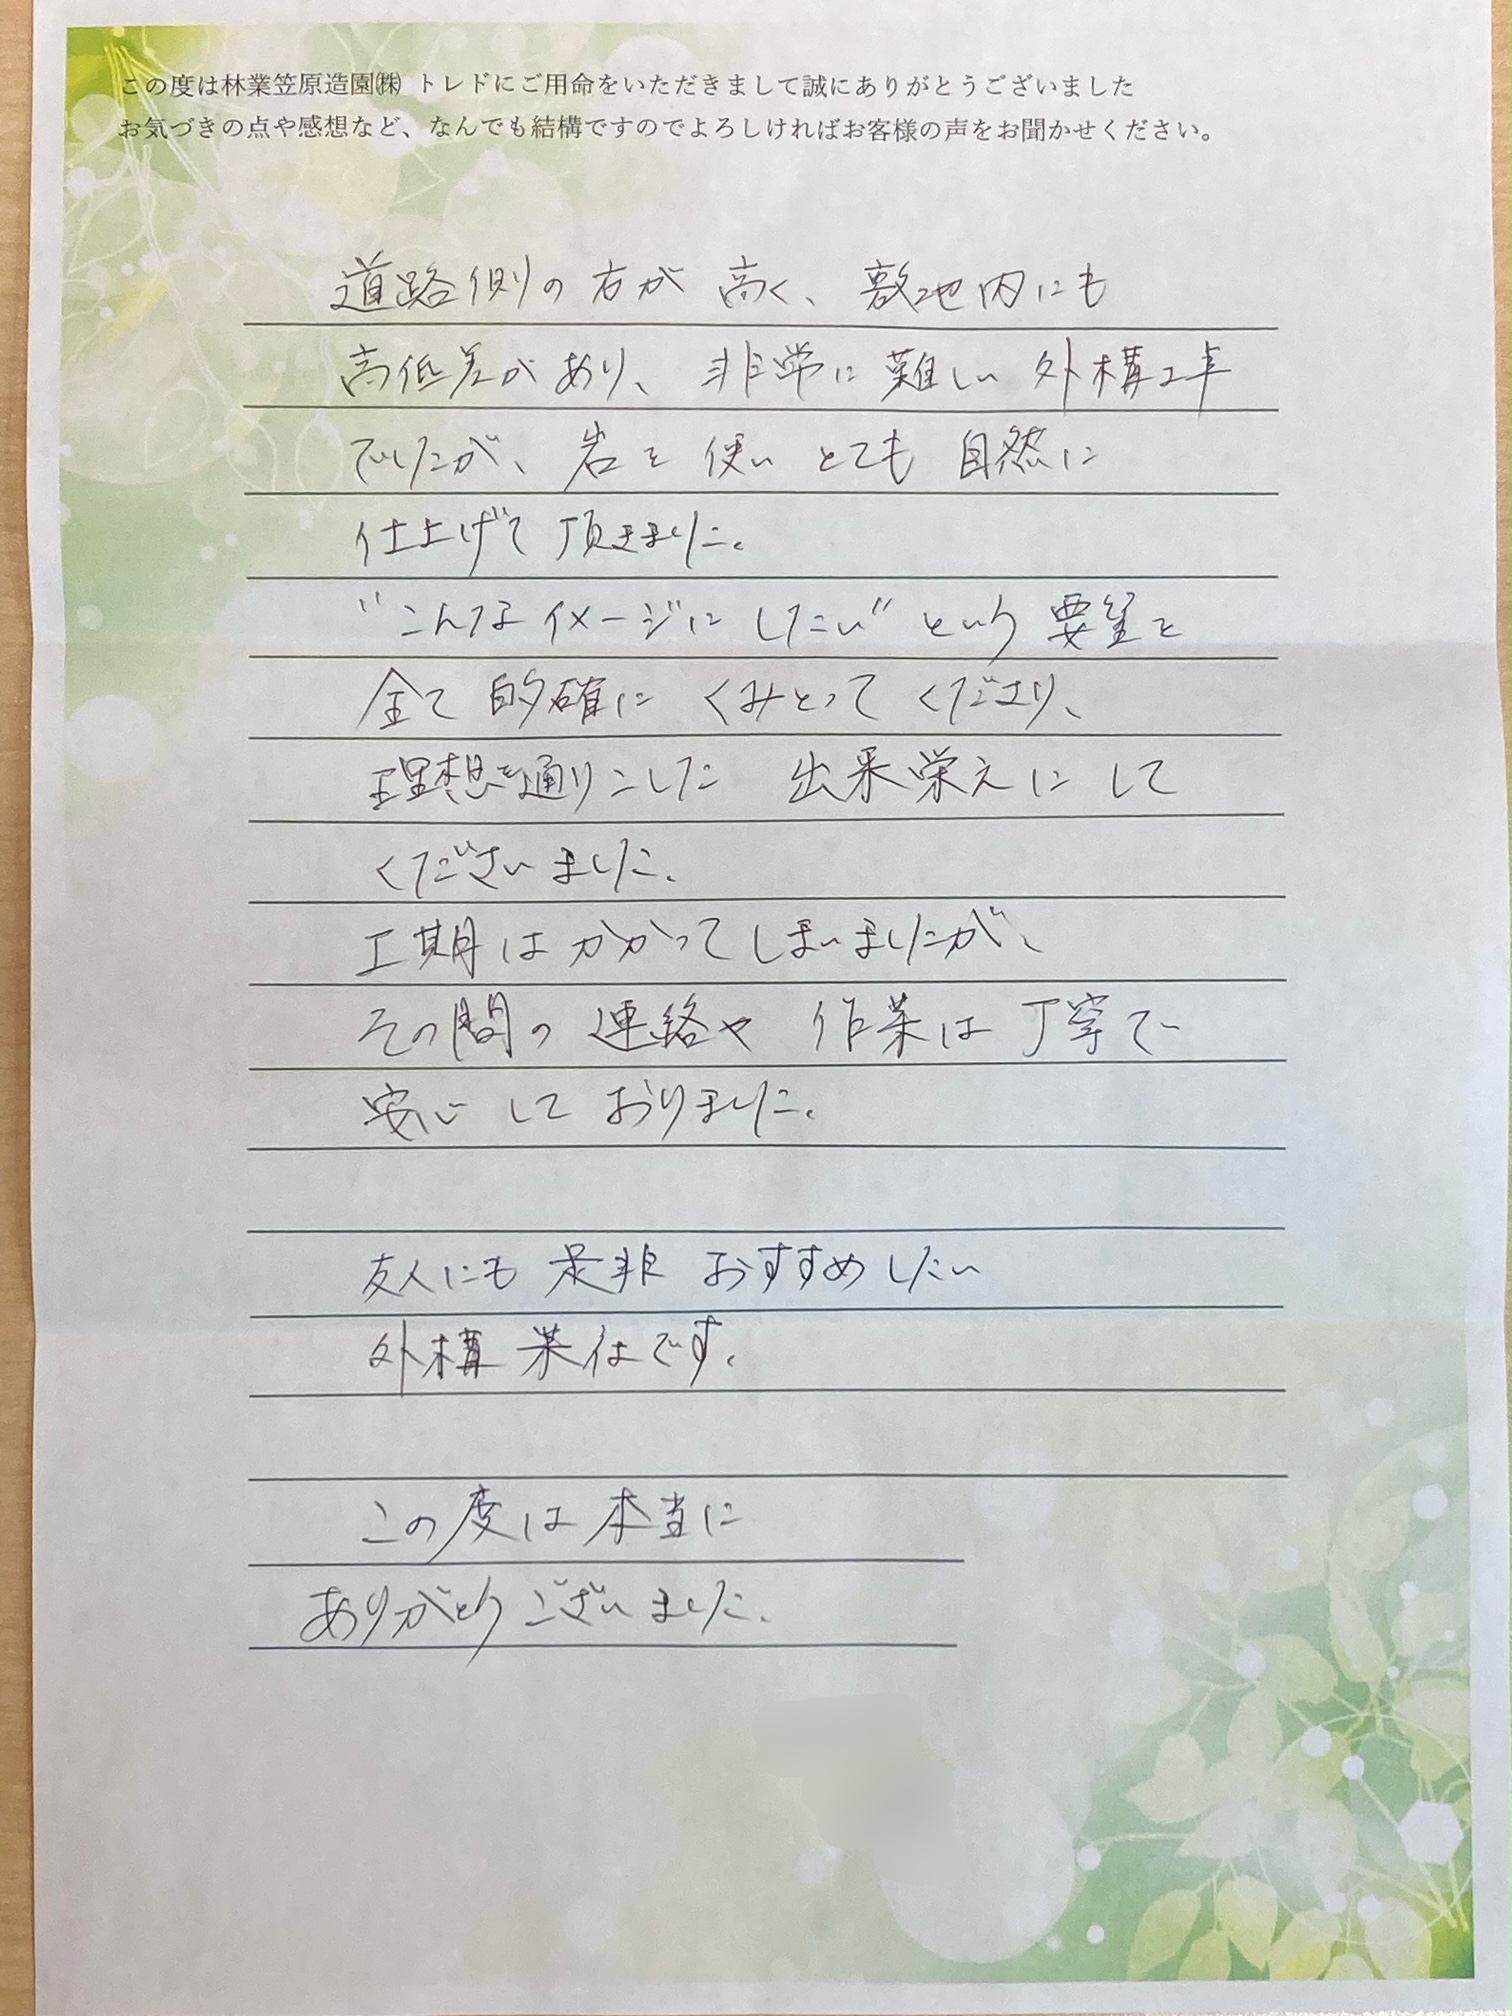 この度は林業笠原造園㈱ トレドにご用命をいただきまして誠にありがとうございました
お気づきの点や感想など、なんでも結構ですのでよろしければお客様の声をお聞かせください。
道路側の方が高く、敷地内にも
高低差があり、非常に難しい外構工事
でしたが、岩を使いとても自然に
仕上げて頂きました。
"こんなイメージにしたい"という要望を
全て的確にくみとってくださり、
理想を通りこした出来栄えにして
くださいました。
工期はかかってしまいましたが、
その間の連絡や作業は丁寧で
安心しておりました。
友人にも是非おすすめしたい
外構業社です。
この度は本当に
ありがとうございました。